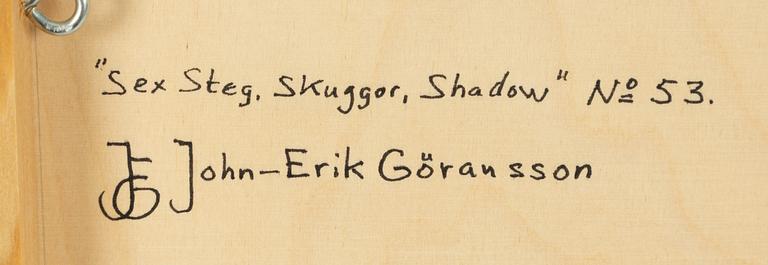 "Sex Steg, Skuggor, Shadow" Nº 53.
JEG John-Erik Göransson